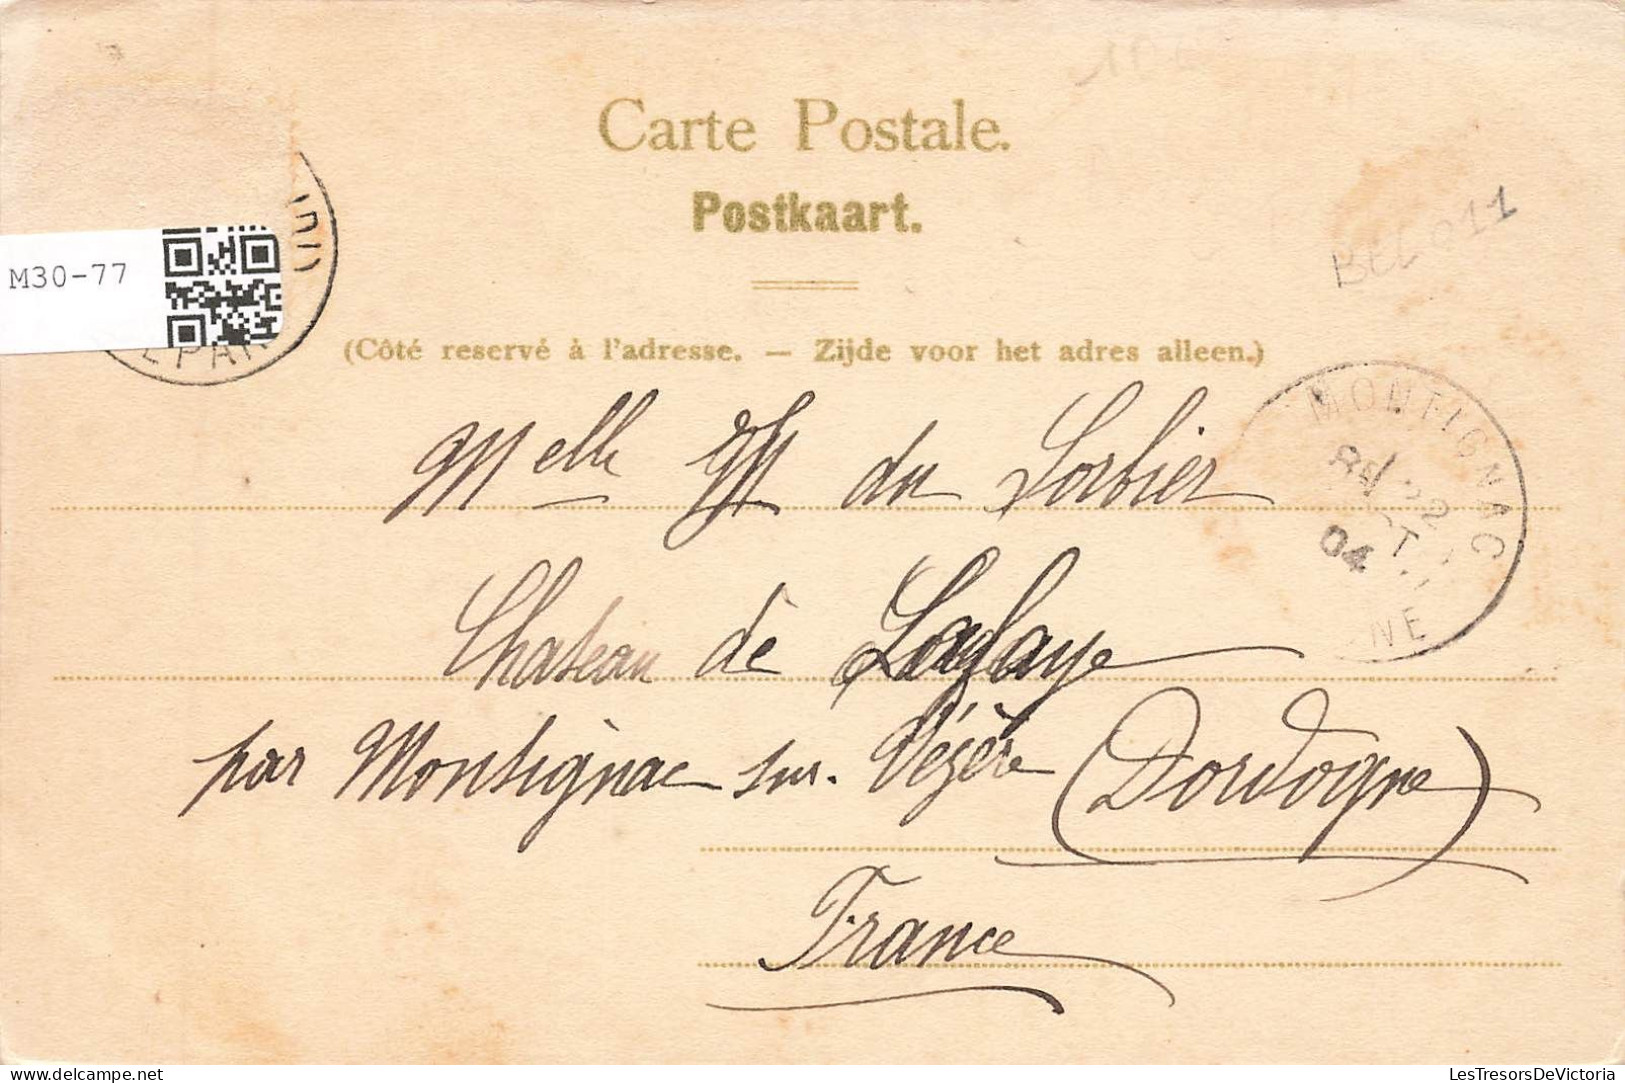 Carte Postale.
Postkaart.
M30-77
BEL011
(Côté reservé à l'adresse. — Zijde voor het adres alleen.)
MONTIGNAC
22
OCT
04
NE
DÉPART
Melle M du Sorbier
Château de Lafaye
par Montignac sur Vézère (Dordogne)
France
LesTresorsDeVictoria